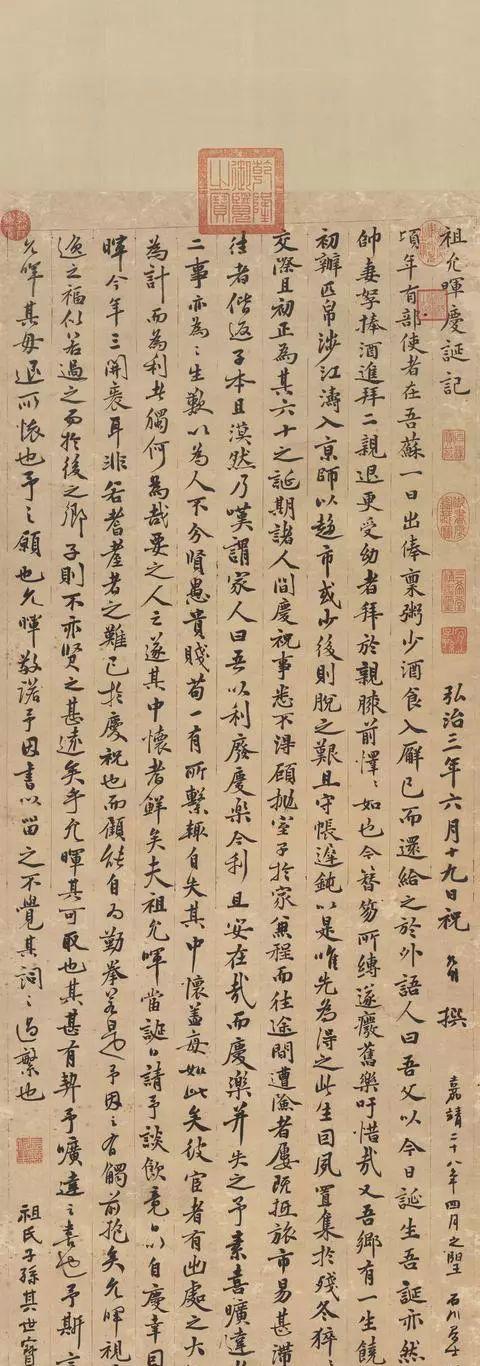 祖允暉慶誕記
弘治三年六月十九日祝
撰
嘉靖二十八年四月之望
石川
頃年有部使者在吾蘇一日出俸稟粥少酒食入廨已而還給之於外語人曰吾父以今日誕生吾誕亦然
帥妻孥捧酒進拜二親退更受幼者拜於親膝前懌〻如也今簪笏所縛遂癈舊樂吁惜哉又吾鄉有一生饒
初辦匹帛涉江濤入京師以趨市或少後則脫之艱且守帳遲鈍以是唯先為得之此生因夙置集於殘冬猝
交際且初正為其六十之誕期諸人間慶祝事悉不得顧拋室子於家兼程而往途間遭澮者屢既抵旅市易甚滯
往者偕返子本且漠然乃嘆謂家人曰吾以利廢慶樂今利且安在哉而慶樂并失之予素喜曠達
二事亦為〻生歎以為人不分賢愚貴賤苟一有所繫輒自失其中懷蓋每如此矣彼宦者有出處之大
為計而為利者觸何為哉要之人之遂其中懷者鮮矣夫祖允暉當誕日請予談飲竟日以自慶幸
暉今年三開袠耳非若耆耋者之難已於慶祝也而顧能自力勤拳若是予因之有觸前抱矣允暉祖
逸之福似若過之而於後之鄉子則不亦賢之甚遠矣乎允暉其可取也其甚有契予曠達之喜也予斯言
允暉其毋退所懷也予之願也允暉敬諾予因書以留之不覺其詞〻過繁也
祖氏子孫其世寶
乾隆御覽之寶